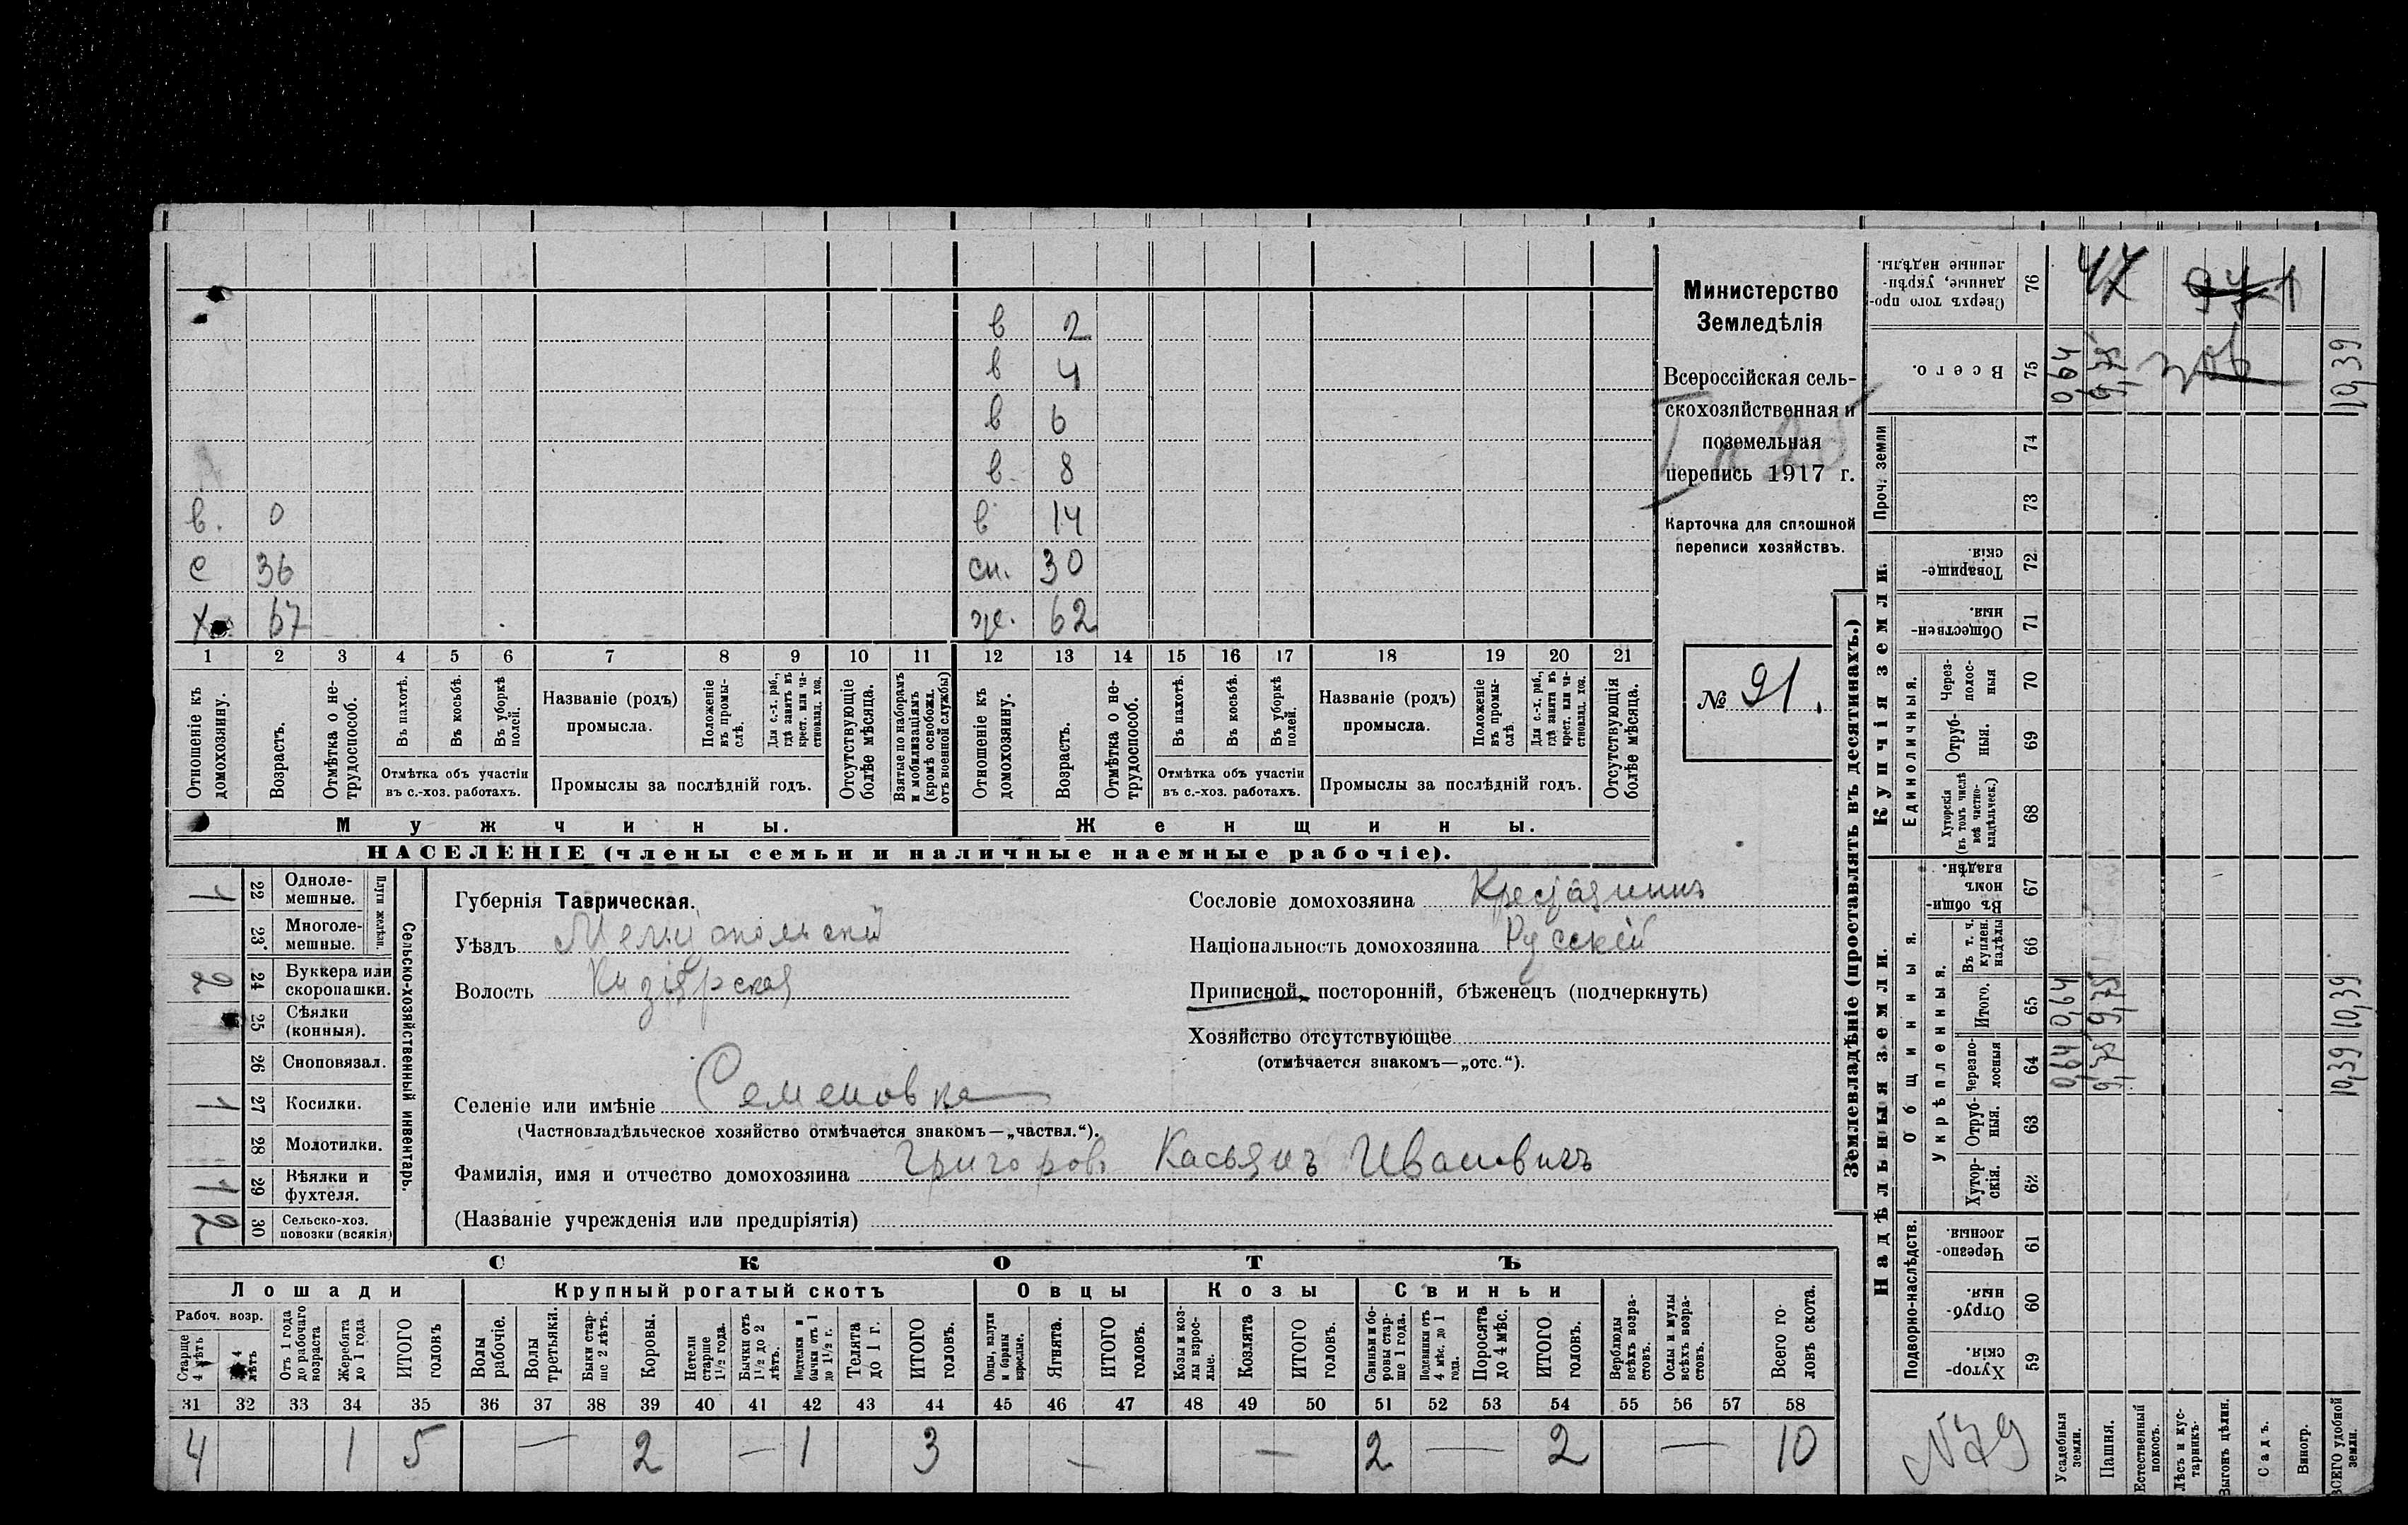 в 2
в 4
в 6
в. 8
в. 0 в 14
с 36 сн. 30
х. 67 ж. 62
1 2 3 4 5 6 7 8 9 10 11 12 13 14 15 16 17 18 19 20 21
Отношеніе къ домохозяину.
Возрастъ.
Отмѣтка о не-
трудоспособ.
Въ пахотѣ.
Въ косьбѣ.
Въ уборкѣ полей.
Отмѣтка объ участіи
въ с.-хоз. работахъ.
Названіе (родъ)
промысла.
Положеніе въ промы-
слѣ.
Для с.-х. раб., гдѣ занятъ въ крест. или ча-
стновлад. хоз.
Промыслы за послѣдній годъ.
Отсутствующіе болѣе мѣсяца.
Взятые по наборамъ и мобилизаціямъ (кромѣ освобожд. отъ военной службы)
Отношеніе къ домохозяину.
Возрастъ.
Отмѣтка о не-
трудоспособ.
Въ пахотѣ.
Въ косьбѣ.
Въ уборкѣ полей.
Отмѣтка объ участіи
въ с.-хоз. работахъ.
Названіе (родъ)
промысла.
Положеніе въ промы-
слѣ.
Для с.-х. раб., гдѣ занята въ крест. или ча-
стновлад. хоз.
Промыслы за послѣдній годъ.
Отсутствующія болѣе мѣсяца.
Мужчины. Женщины.
НАСЕЛЕНІЕ (члены семьи и наличные наемные рабочіе).
Министерство
Земледѣлія
Всероссійская сель-
скохозяйственная и
поземельная
перепись 1917 г.
Карточка для сплошной
переписи хозяйствъ.
№ 91.
Сельско-хозяйственный инвентарь.
Плуги желѣзн.
1 22 Одноле-
мешные.
23 Многоле-
мешные.
2 24 Буккера или
скоропашки.
25 Сѣялки
(конныя).
26 Сноповязал.
1 27 Косилки.
28 Молотилки.
1 29 Вѣялки и
фухтеля.
2 30 Сельско-хоз.
повозки (всякія)
Губернія Таврическая.
Уѣздъ Мелитопольскій
Волость Кизіярская
Сословіе домохозяина Крестьянинъ
Національность домохозяина Русскій
Приписной, посторонній, бѣженецъ (подчеркнуть)
Хозяйство отсутствующее
(отмѣчается знакомъ—„отс.“).
Селеніе или имѣніе Семеновка
(Частновладѣльческое хозяйство отмѣчается знакомъ—„частвл.“).
Фамилія, имя и отчество домохозяина Григоровъ Касьянъ Ивановичъ
(Названіе учрежденія или предпріятія)
СКОТЪ
Лошади Крупный рогатый скотъ Овцы Козы Свиньи
Рабоч. возр.
Старше 4 лѣтъ
4 лѣтъ
Отъ 1 года до рабочаго возраста
Жеребята до 1 года
ИТОГО головъ
Волы рабочіе.
Волы третьяки.
Быки стар-
ше 2 лѣтъ.
Коровы.
Нетели старше 1½ года.
Бычки отъ 1½ до 2 лѣтъ.
Нодтелки и бычки отъ 1 до 1½ г.
Телята до 1 г.
ИТОГО головъ.
Овцы, валухи и бараны взрослые.
Ягнята.
ИТОГО головъ.
Козы и коз-
лы взрос-
лые.
Козлята
ИТОГО головъ.
Свиньи и бо-
ровы стар-
ше 1 года.
Подсвинки отъ 4 мѣс. до 1 года.
Поросята до 4 мѣс.
ИТОГО головъ.
Верблюды всѣхъ возра-
стовъ.
Ослы и мулы всѣхъ возра-
стовъ.
Всего го-
ловъ скота.
31 32 33 34 35 36 37 38 39 40 41 42 43 44 45 46 47 48 49 50 51 52 53 54 55 56 57 58
4 1 5 — 2 — 1 3 — — 2 — 2 — 10
Землевладѣніе (проставлять въ десятинахъ.)
Надѣльныя земли. Купчія земли.
Подворно-наслѣдств.
Общинныя.
Укрѣпленныя.
Единоличныя.
Проч. земли
59 Хутор-
скія.
60 Отруб-
ныя.
61 Черезпо-
лосныя.
62 Хутор-
скія.
63 Отруб-
ныя.
64 Черезпо-
лосныя 0,64 9,75 10,39
65 Итого. 0,64 9,75 10,39
66 Въ т. ч. куплен. надѣлы
67 Въ общин-
номъ владѣн.
68 Хуторскія (въ томъ числѣ всѣ частно-
владѣльческ.)
69 Отруб-
ныя.
70 Через-
полос-
ныя
71 Обществен-
ныя.
72 Товарище-
скія.
73
74
75 Всего. 0,64 9,75 10,39
76 Сверхъ того про-
данные, укрѣп-
ленные надѣлы. 47
N79
Усадебныя земли.
Пашня.
Естественный покосъ.
Лѣсъ и кус-
тарникъ.
Выгонъ цѣлин.
Садъ.
Виногр.
ВСЕГО удобной земли.